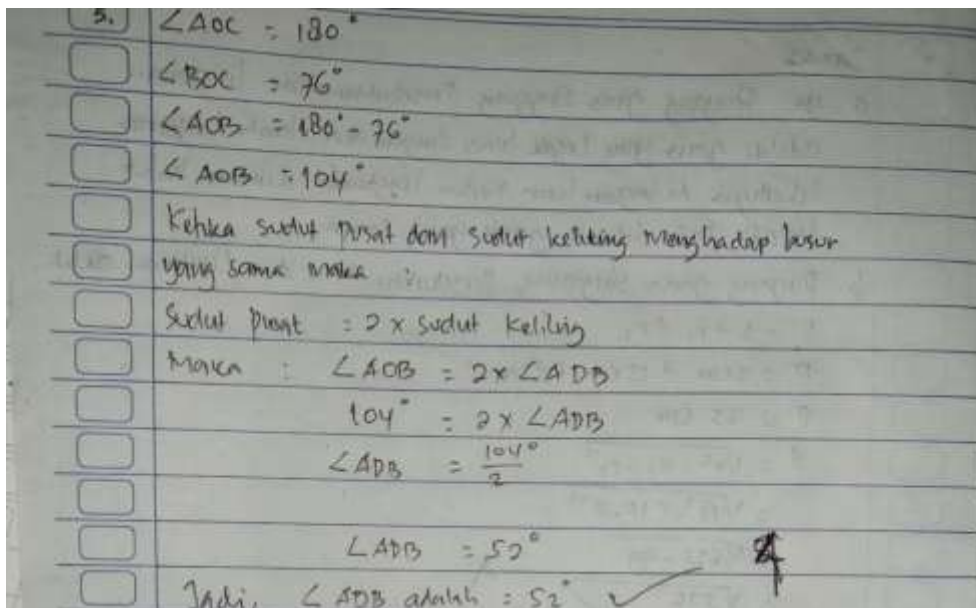 5. ∠AOC = 180°
∠BOC = 76°
∠AOB = 180° - 76°
∠AOB = 104°
Ketika sudut pusat dan sudut keliling menghadap busur
yang sama maka :
Sudut pusat = 2 x sudut keliling
Maka : ∠AOB = 2 x ∠ADB
104° = 2 x ∠ADB
∠ADB = 104°/2
∠ADB = 52°
Jadi, ∠ADB adalah = 52° ✓